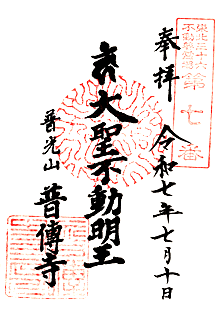 東北三十六
不動尊霊場
第七番
奉拝
令和七年七月十日
大聖不動明王
普光山
普傳寺